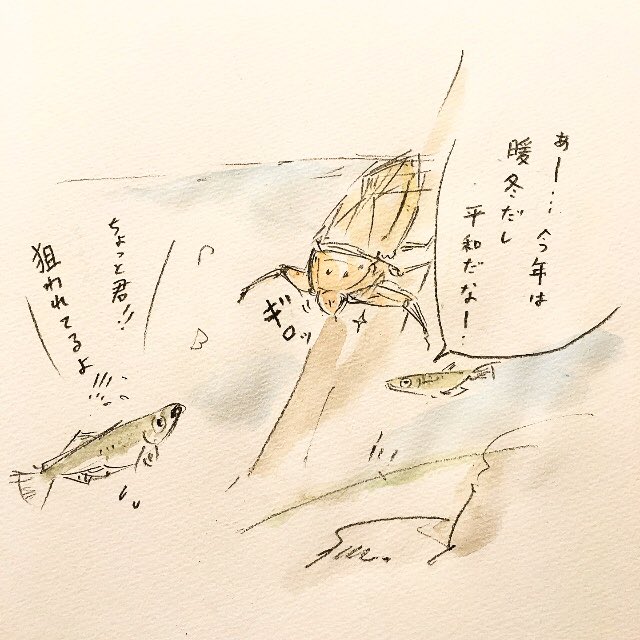 あー… 今年は
暖冬だし
平和だなー…
ギロッ
ちょっと君!!
狙われてるよ!!!